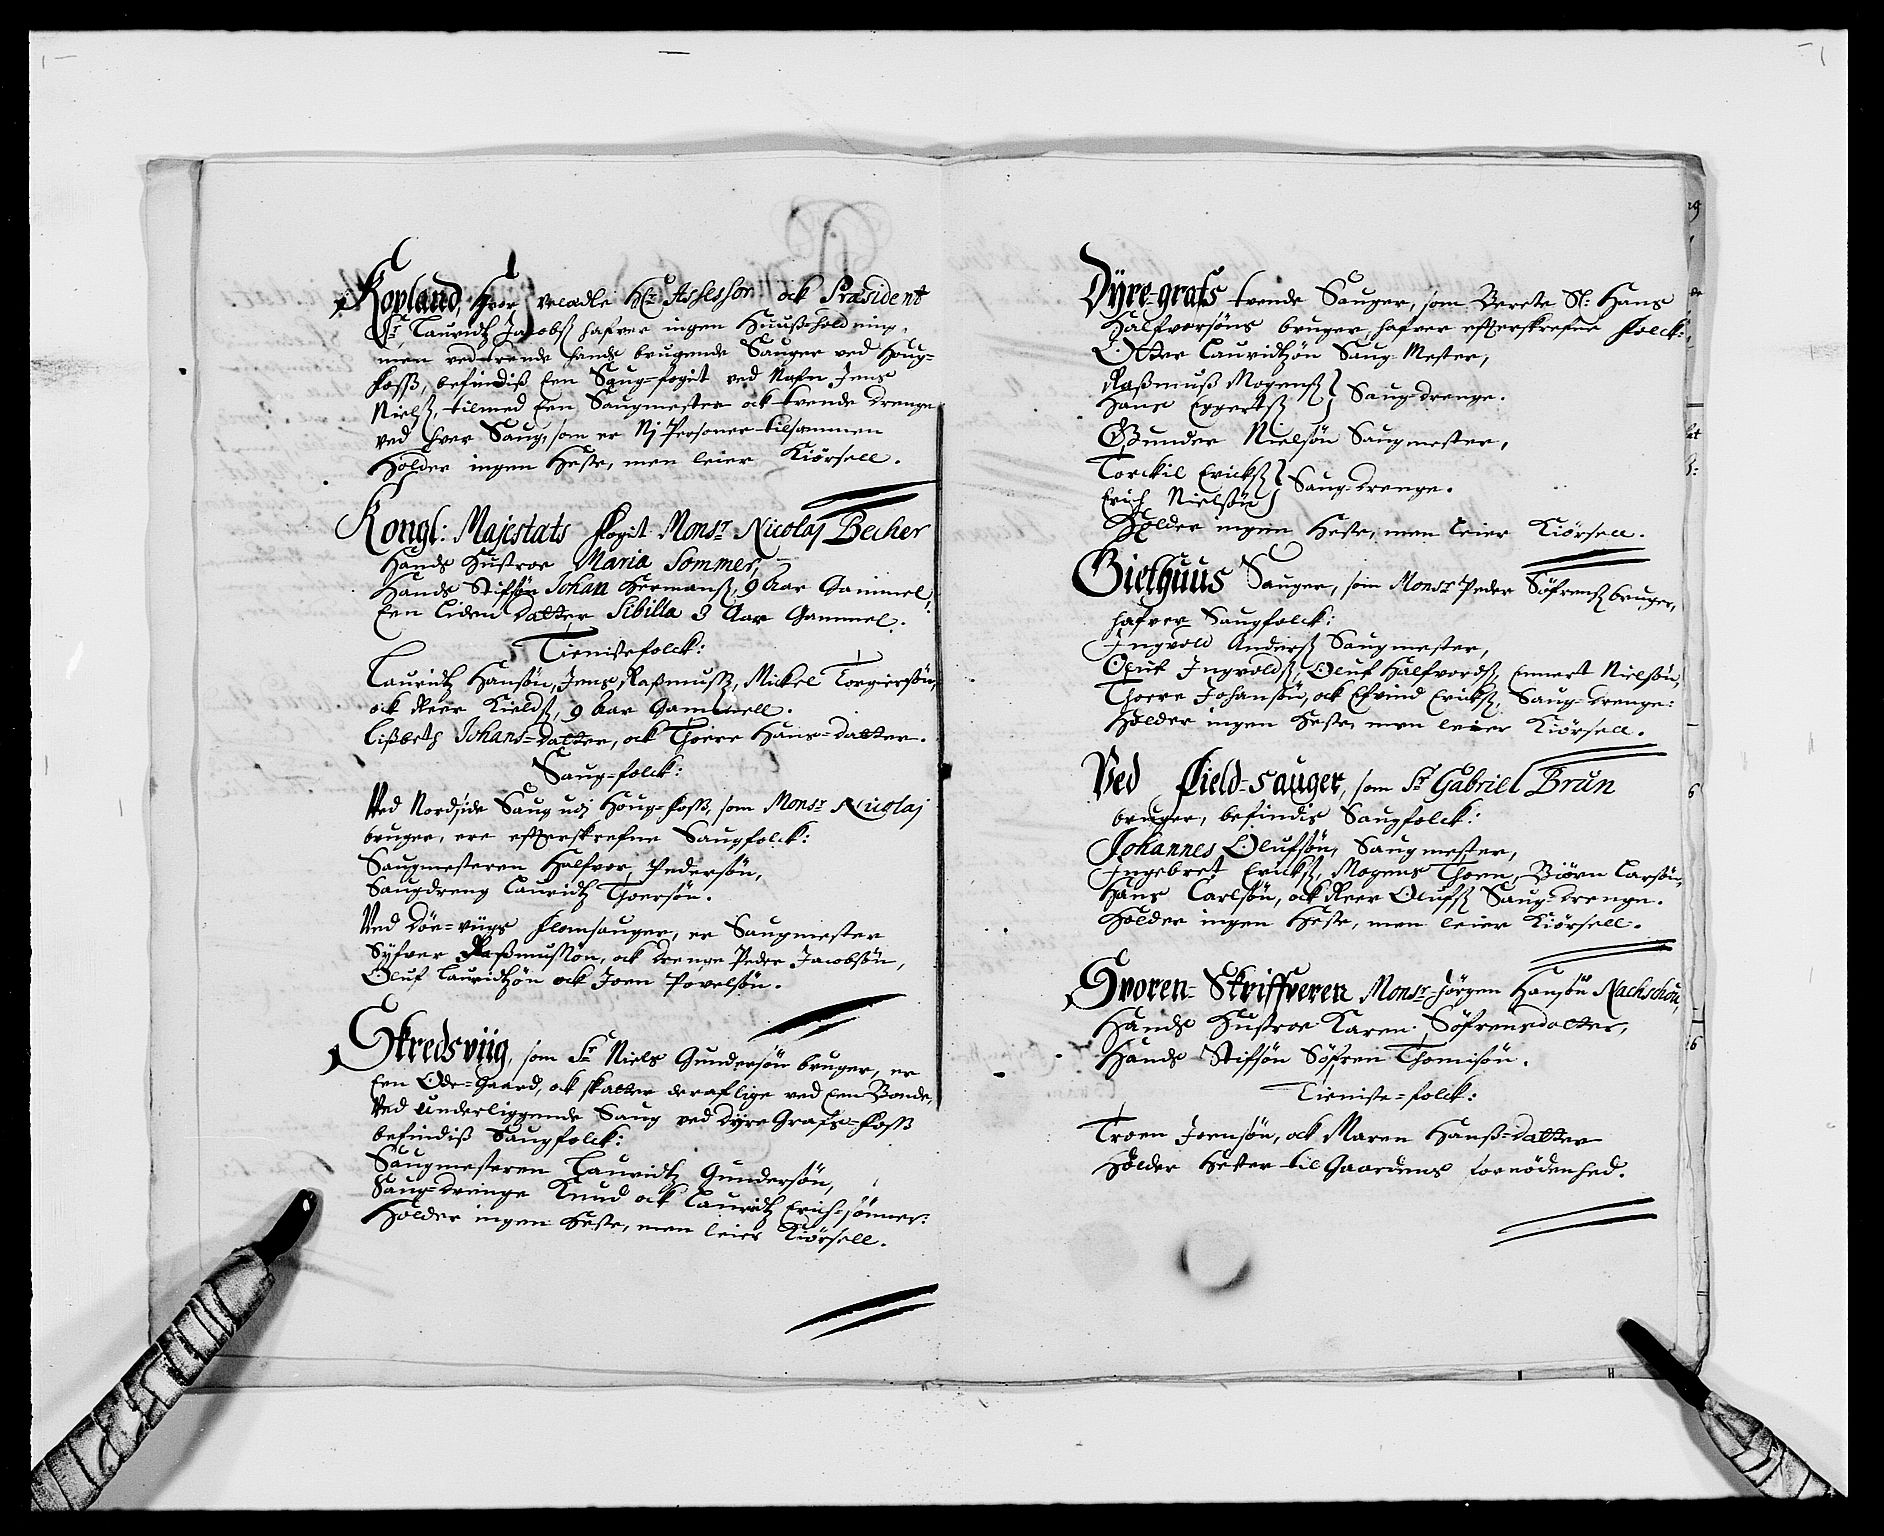 Kopland, Hvor Veladle Hr: Assessor ock Præsident
Sr: Lauridtz Jacobs: hafver ingen Huuß-holdning,
men vederende hands brugende Sauger ved Houg-
foss, befindiß Een Saug-fogit ved Nafn Jens
Niels:, tilmed Een Saugmester ock tvende drenge
ved hver Saug, som er Nj Personer tilsammen
Holder ingen Heste, men leier Kiörsell.
Kongl: Majestats fogit Monsr Nicolaj Becher
Hands Hustroe Maria Sommer,
Hands Stifsön Johan Hermans:, 9 Aar Gammel,
Een Liden datter Sibilla 3 Aar Gammel.
Tienistefolck:
Lauridtz Hansön, Jens Raßmuss:, Mickel Torgiersön,
ock Reer Kields:, 9 Aar Gammell.
Lißbeth Johans-datter, ock Thore Hans-datter.
Saug-folck:
Ved Nordside Saug udj Houg-foss, som Monsr Nicolaj
bruger, ere efterskrefne Saugfolck:
Saugmesteren Halfvor Pedersön,
Saugdreng Lauridtz Thorsön.
Ved Döe-viigs flomsauger, er Saugmester
Syfver Raßmussön, ock drenge Peder Jacobsön,
Oluf Lauridtzön ock Joen Povelsön.
Skredsviig, som Sr Niels Gundersön bruger, er
Een Öde-Gaard, ock skatter deraf lige ved Een Bonde,
Ved underliggende Saug ved Dyre Grafs-foss
befindiß Saugfolck:
Saugmesteren Lauridtz Gundersön,
Saug-drenge Knud ock Lauridtz Erich-sönner:
Holder ingen Heste, men leier Kiörsell.
Dyre-grafs tvende Sauger, som Berete Sl: Hans
Halfvorsöns bruger, hafver efterskrefne folck:
Otter Lauridtzön Saug-Mester,
Raßmuß Mogens:
Hans Eggerts: } Saug-drenge.
Gunder Nielsön Saugmester,
Torckil Ericks:
Erich Nielsön } Saug-drenge.
Holder ingen Heste, men leier Kiörsell.
Gielhuus Sauger, som Monsr Peder Söfrens: bruger,
hafver Saugfolck:
Ingvold Anders: Saugmester,
Oluf Ingvolds:, Oluf Halfvords:, Emmert Nielsön,
Thore Johansön, ock Efvind Ericks:, Saug-drenge:
Holder ingen Heste, men leier Kiörsell.
Ved Field-sauger, som Sr Gabriel Brun
bruger, befindis Saugfolck:
Johannes Olufsön, Saugmester,
Ingebret Ericks:, Mogens Thoen, Biörn Larsön,
Hans Carlsön, ock Reer Olufs: Saug-drenge.
Holder ingen Heste, men leier Kiörsell.
Svoren-Skriffveren Monsr Jörgen Hansön Nachschou,
Hands Hustroe Karen Söfrensdatter,
Hands Stifsön Söfren Thomisön.
Tieniste-folck:
Troen Joensön, ock Maren Hanß-datter
Holder Hester til Gaardens fornödenhed.